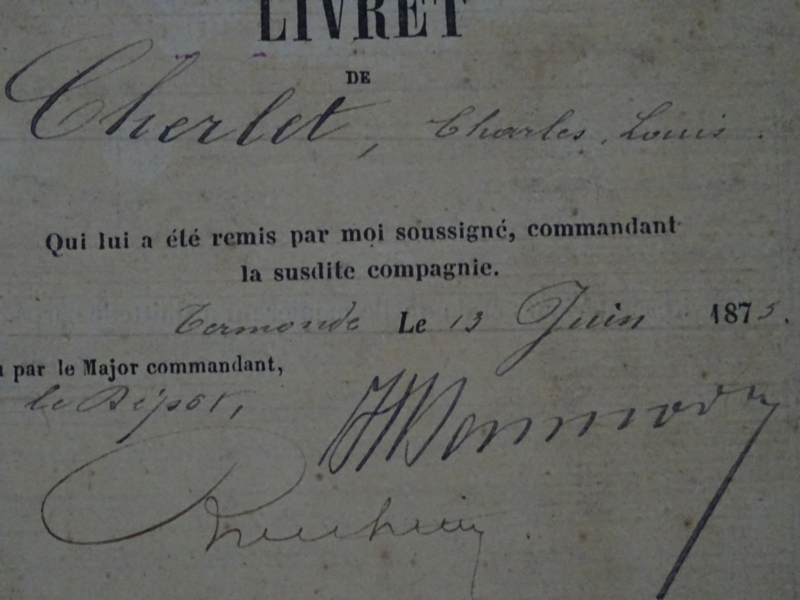 LIVRET
DE
Cherlet, Charles, Louis.
Qui lui a été remis par moi soussigné, commandant
la susdite compagnie.
Termonde Le 13 Juin 1875.
par le Major commandant,
le Dépôt,